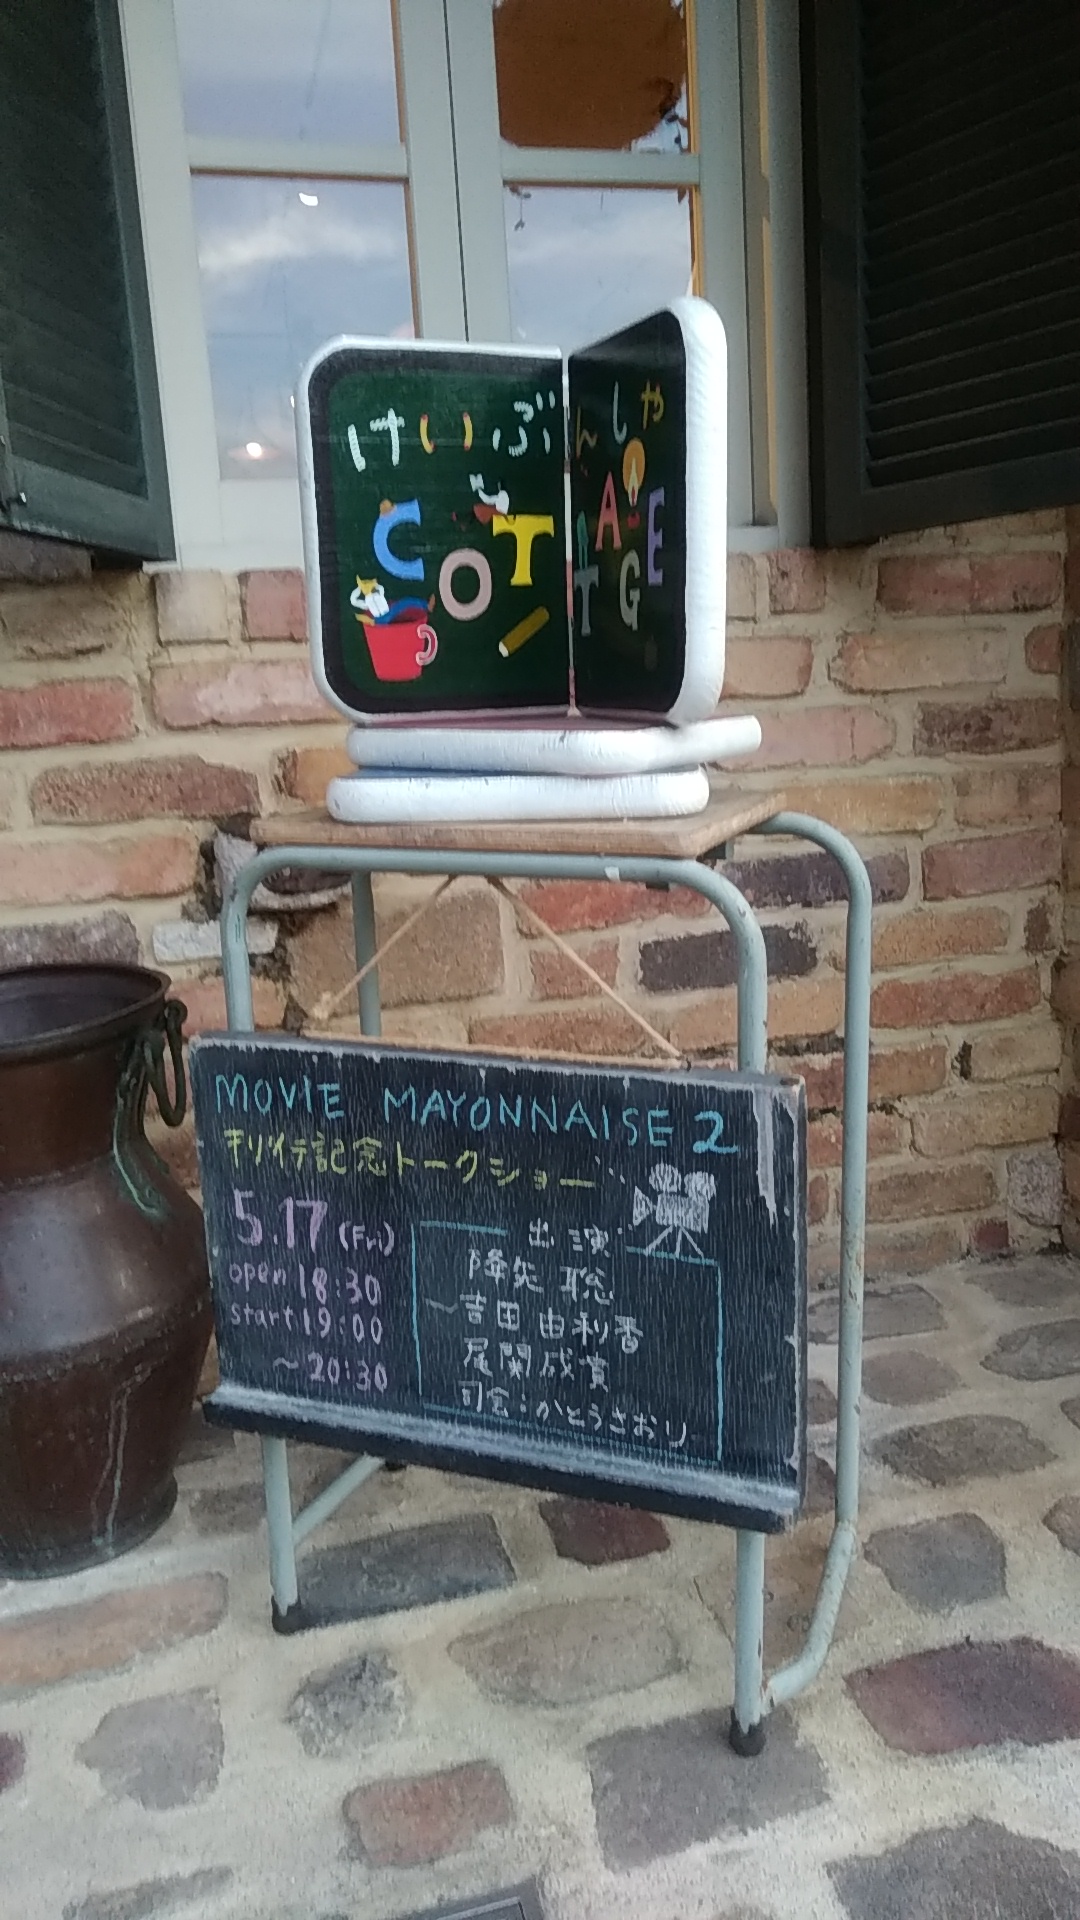 けいぶんしゃ
COTTAGE
MOVIE MAYONNAISE 2
刊行記念トークショー
5.17 (Fri)
open 18:30
start 19:00
~20:30
出演
降矢 聡
吉田 由利香
尾関成貴
司会:かとうさおり